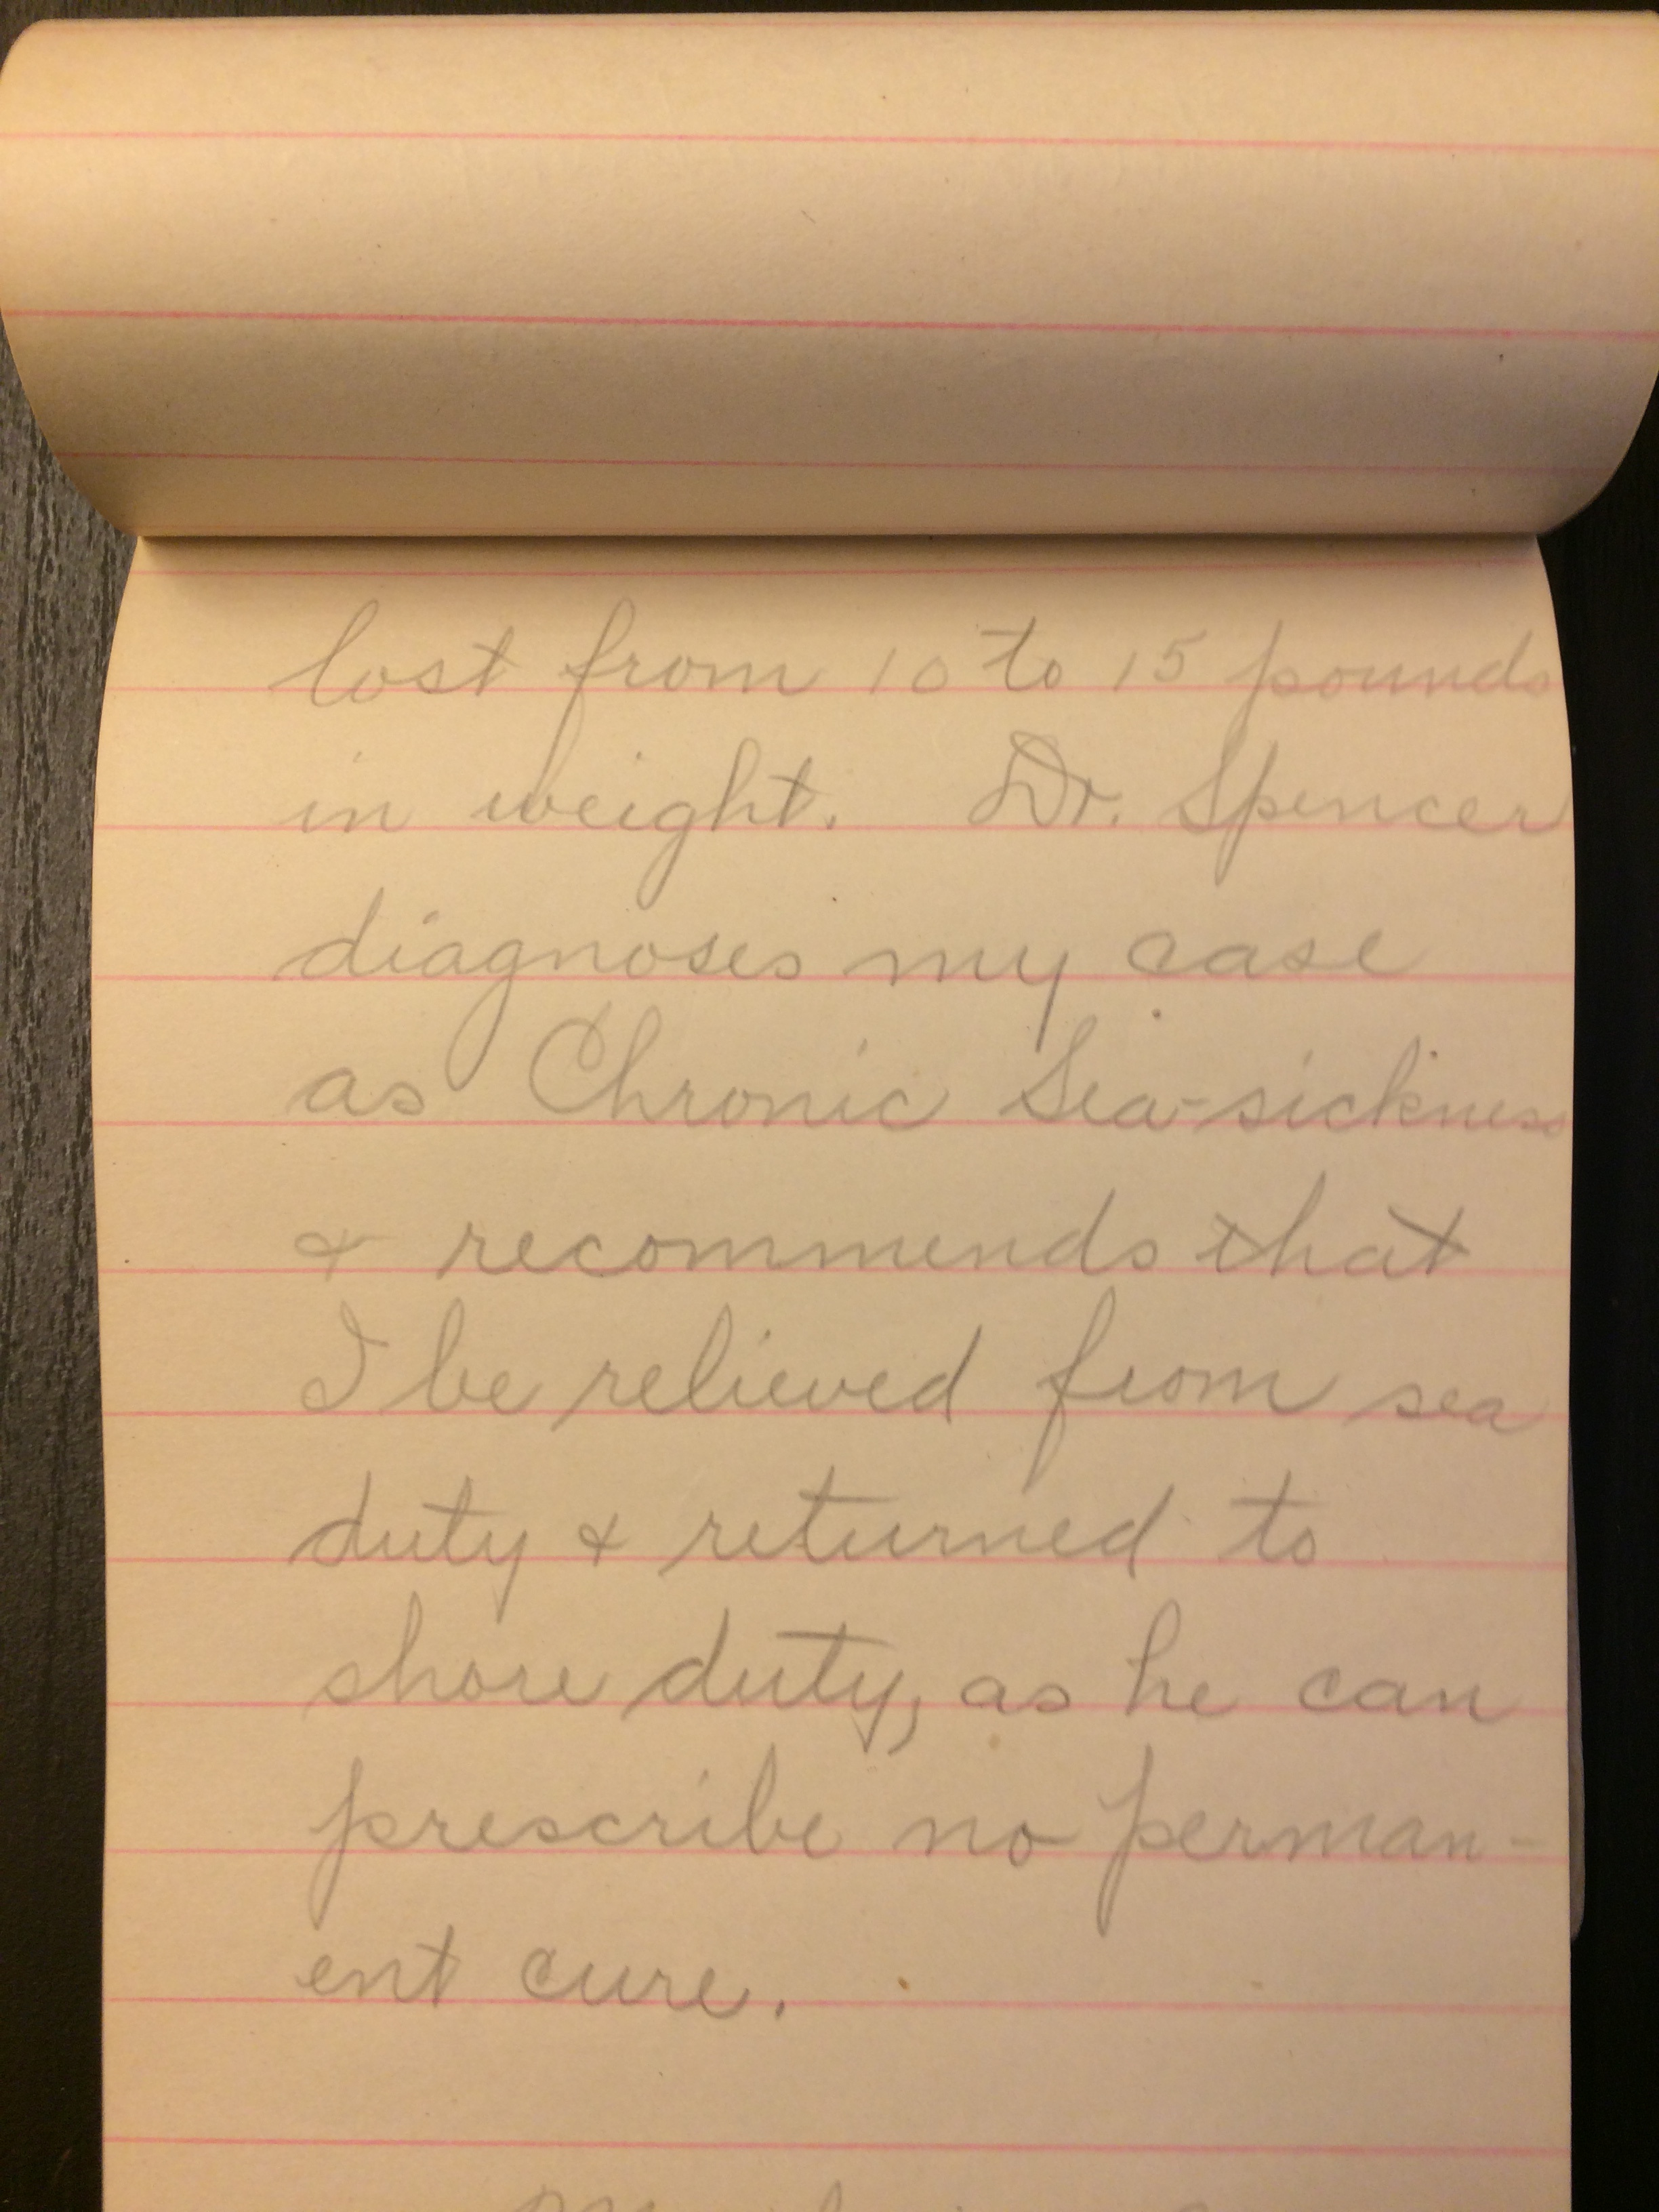 lost from 10 to 15 pounds
in weight. Dr. Spencer
diagnoses my case
as Chronic Sea-sickness
& recommends that
I be relieved from sea
duty & returned to
shore duty, as he can
prescribe no perman-
ent cure.